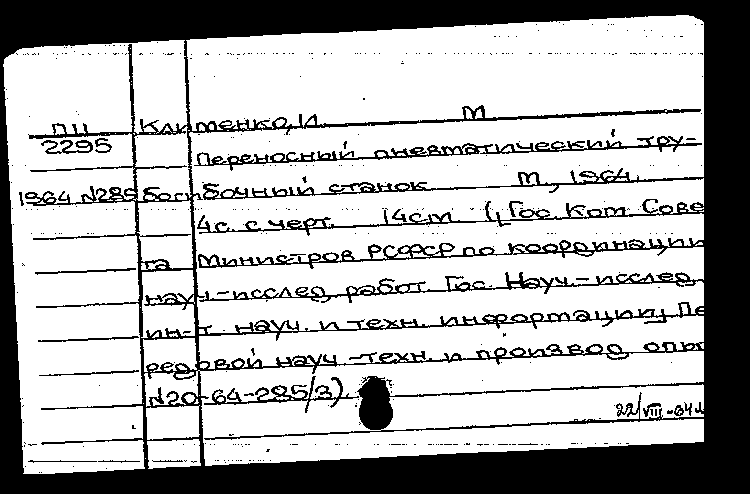 ПЦ Клименко, И. М
2295
Переносный пневматический тру-
1964 №289 босп бочный станок М, 1964.
4с. с черт. 14см (Гос. Ком. Сове
та Министров РСФСР по координации
науч.-исслед работ Гос. Науч.-исслед
ин-т. науч. и техн. информации Пе
редовой науч-техн. и производ опы
№20-64-285/3).
22/VIII-64